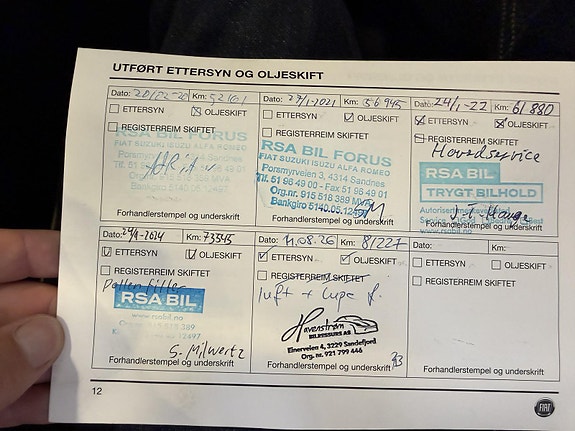 UTFØRT ETTERSYN OG OLJESKIFT
Dato: Km: 52161
ETTERSYN OLJESKIFT
REGISTERREIM SKIFTET
RSA BIL FORUS
FIAT SUZUKI ISUZU ALFA ROMEO
Porsmyrveien 3, 4314 Sandnes
Forhandlerstempel og underskrift
Dato: 27/1-2021 Km: 56945
ETTERSYN OLJESKIFT
REGISTERREIM SKIFTET
RSA BIL FORUS
FIAT SUZUKI ISUZU ALFA ROMEO
Porsmyrveien 3, 4314 Sandnes
Tlf. 51 96 49 00 - Fax 51 96 49 01
Org.nr: 915 518 389 MVA
Bankgiro 5140.05.12497
Forhandlerstempel og underskrift
Dato: 24/1-22 Km: 61880
ETTERSYN OLJESKIFT
REGISTERREIM SKIFTET
Hovedservice
RSA BIL
TRYGT BILHOLD
www.rsabil.no
Forhandlerstempel og underskrift
Dato: 24/9-2024 Km: 73545
ETTERSYN OLJESKIFT
REGISTERREIM SKIFTET
Pollenfilter
RSA BIL
www.rsabil.no
S. Milwertz
Forhandlerstempel og underskrift
Dato: 11.08.26 Km: 81227
ETTERSYN OLJESKIFT
REGISTERREIM SKIFTET
luft + kupe f.
Havnstrøm
BILRESSURS AS
Einerveien 4, 3229 Sandefjord
Org. nr. 921 799 446
Forhandlerstempel og underskrift
Dato: Km:
ETTERSYN OLJESKIFT
REGISTERREIM SKIFTET
Forhandlerstempel og underskrift
12
FIAT